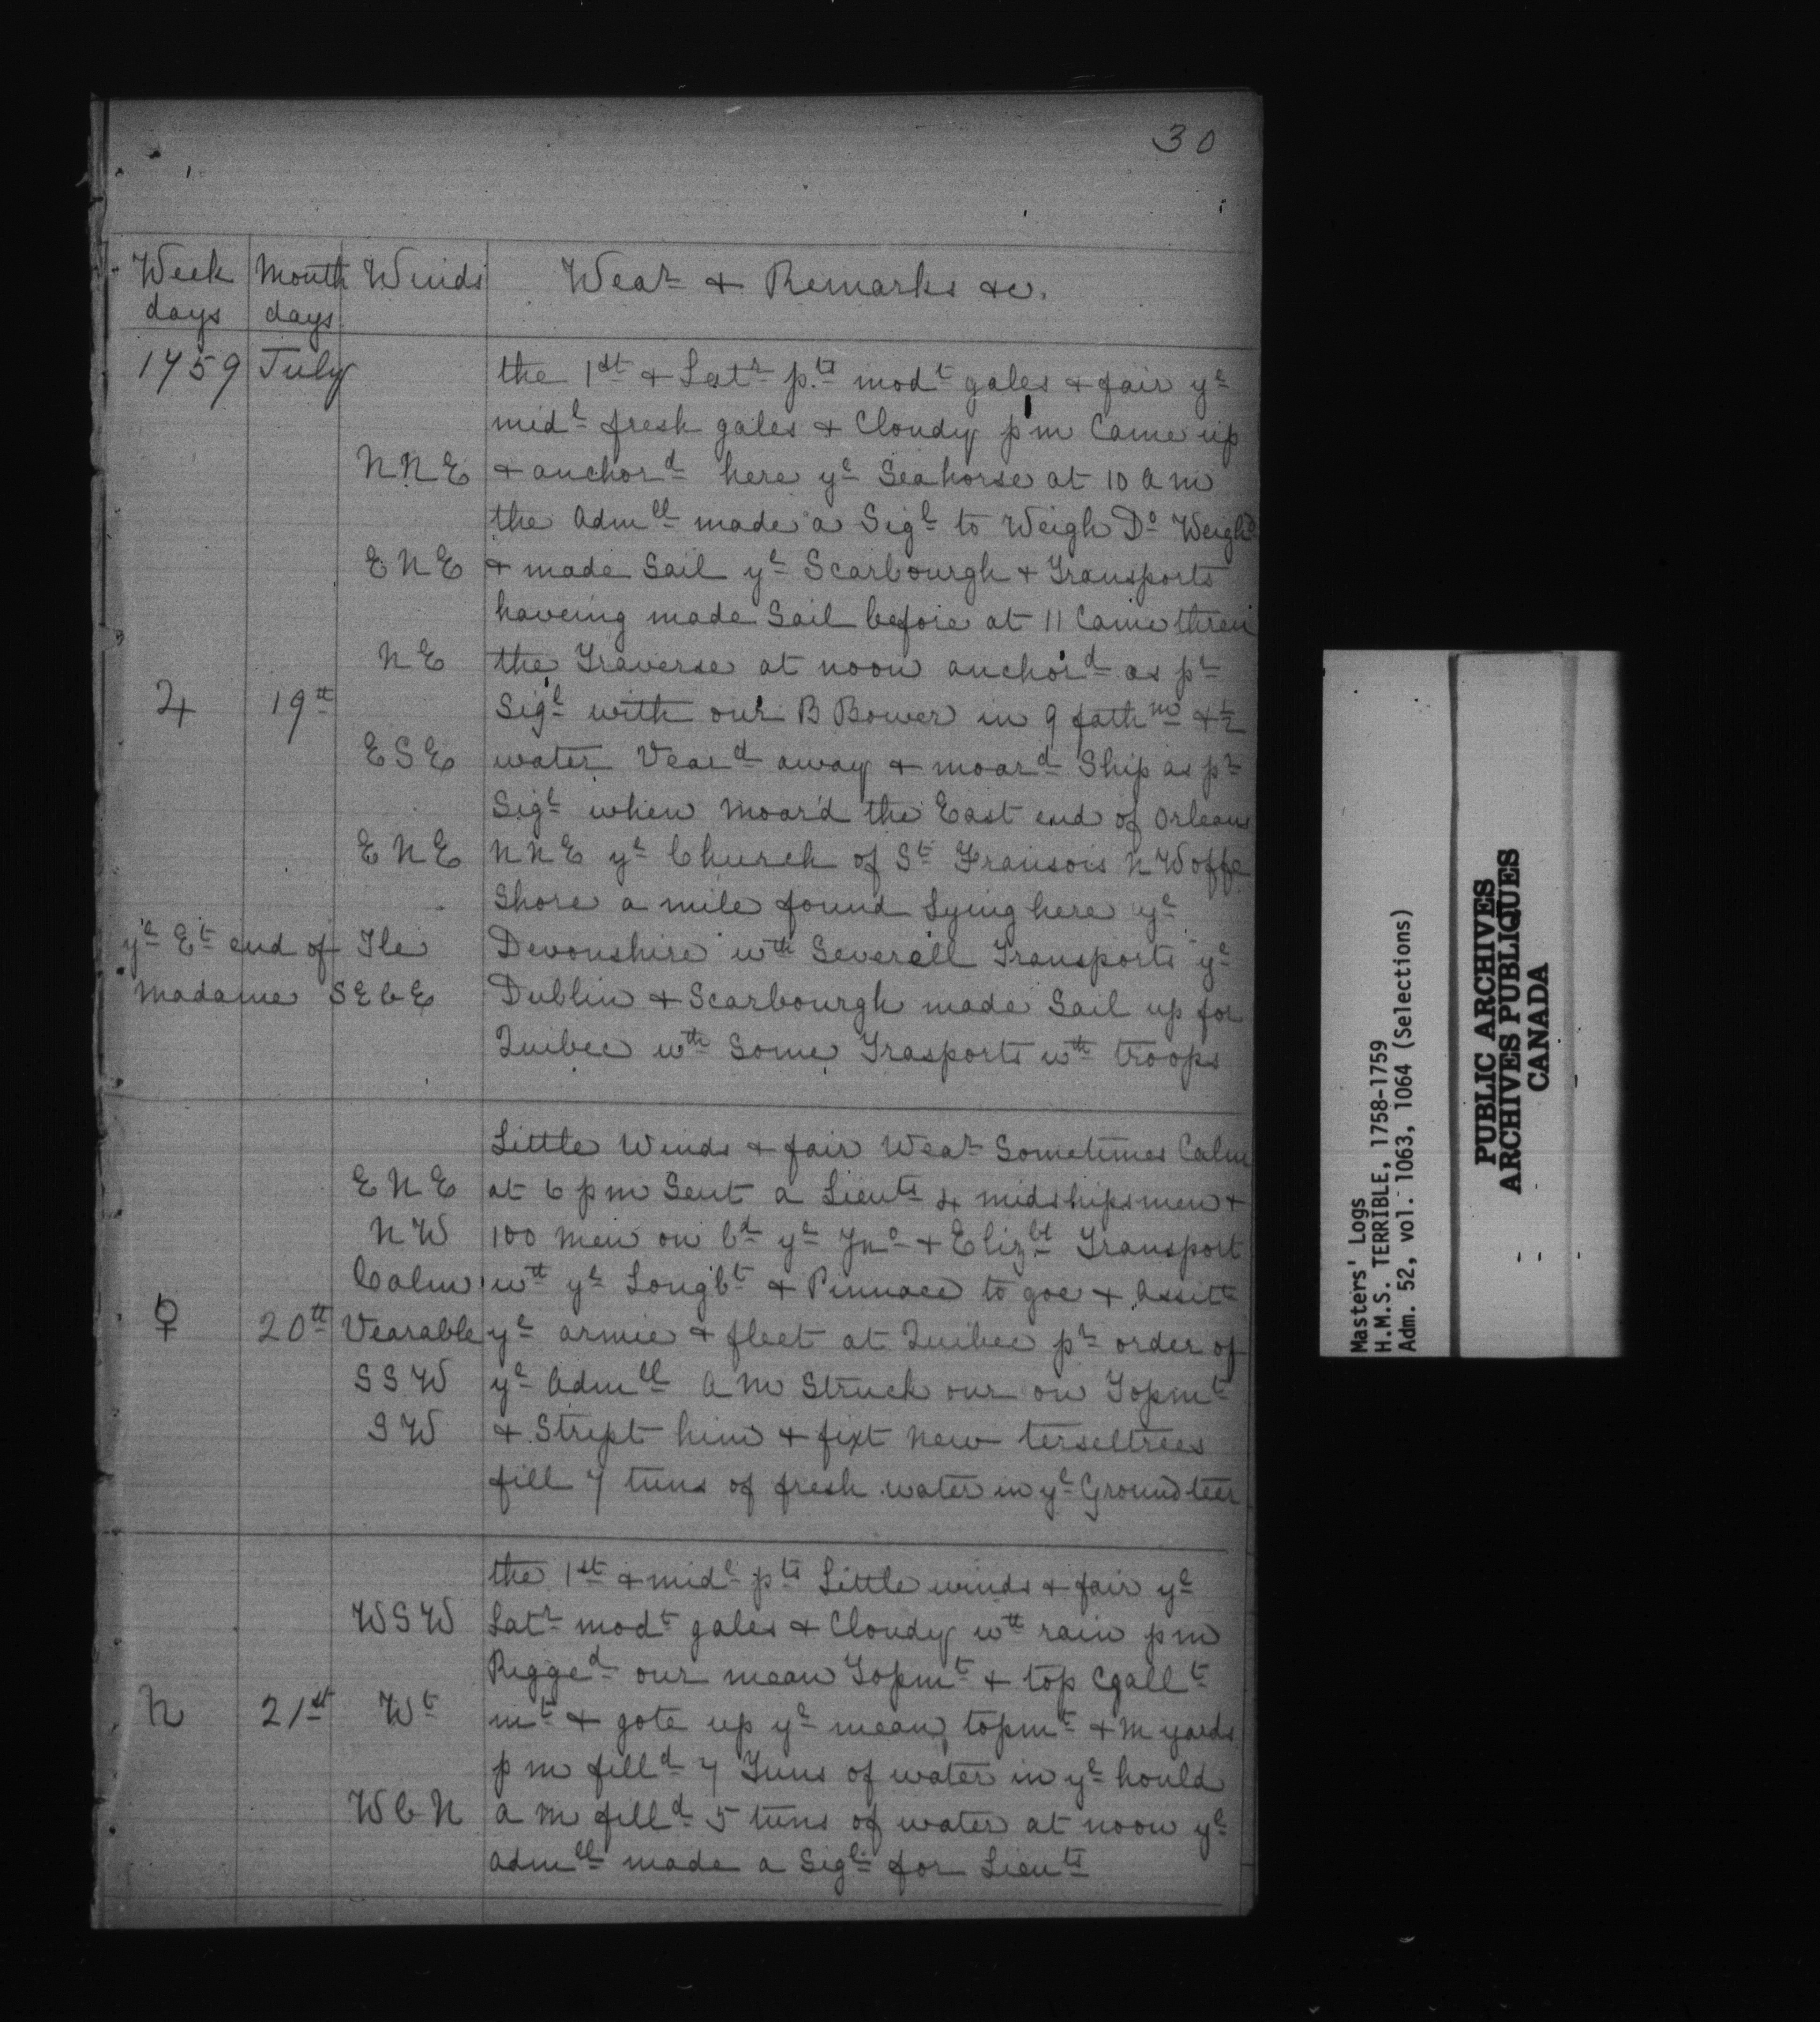 30
Week days Month days Winds Wear & Remarks &c.
1759 July the 1st & Latr p.ts modt gales & fair ye
midl fresh gales & Cloudy p m Came up
NNE & anchord here ye Seahorse at 10 a m
the Admll made a Sigl to Weigh Do Weighd
ENE & made Sail ye Scarbourgh & Transports
haveing made Sail before at 11 Came threw
NE the Traverse at noon anchord as pr
♃ 19th Sigl with our B Bower in 9 fathm & ½
ESE water Veard away & moard Ship as pr
Sigl when Moar'd the East end of Orleans
ENE NNE ye Church of St Fransois NW offe
Shore a mile found Lying here ye
ye Et end of Ile Devonshire wth Severell Transports ye
Madame SEbE Dublin & Scarbourgh made Sail up for
Quibec wth Some Trasports wth troops
Little Winds & fair Wear Sometimes Calm
ENE at 6 p m Sent a Lieuts 4 midshipsmen &
NW 100 Men on bd ye Jno & Elizbt Transport
Calm wth ye Longbt & Pinnace to goe & Assitt
♀ 20th Vearable ye armie & fleet at Quibec pr order of
SSW ye Admll A M Struck our on Topmt
SW & Stript him & fixt new terseltrees
fill 7 tuns of fresh water in ye Ground teer
the 1st & midl pts Little winds & fair ye
WSW Latr modt gales & Cloudy wth rain p m
Rigged our mean Topmt & top Cgallt
♄ 21st Wt mt & gote up ye mean topmt & M yards
p m filld 7 Tuns of water in ye hould
WbN a m filld 5 tuns of water at noon ye
Admll made a Sigl for Lieuts
Masters' Logs
H.M.S. TERRIBLE, 1758-1759
Adm. 52, vol. 1063, 1064 (Selections)
PUBLIC ARCHIVES
ARCHIVES PUBLIQUES
CANADA